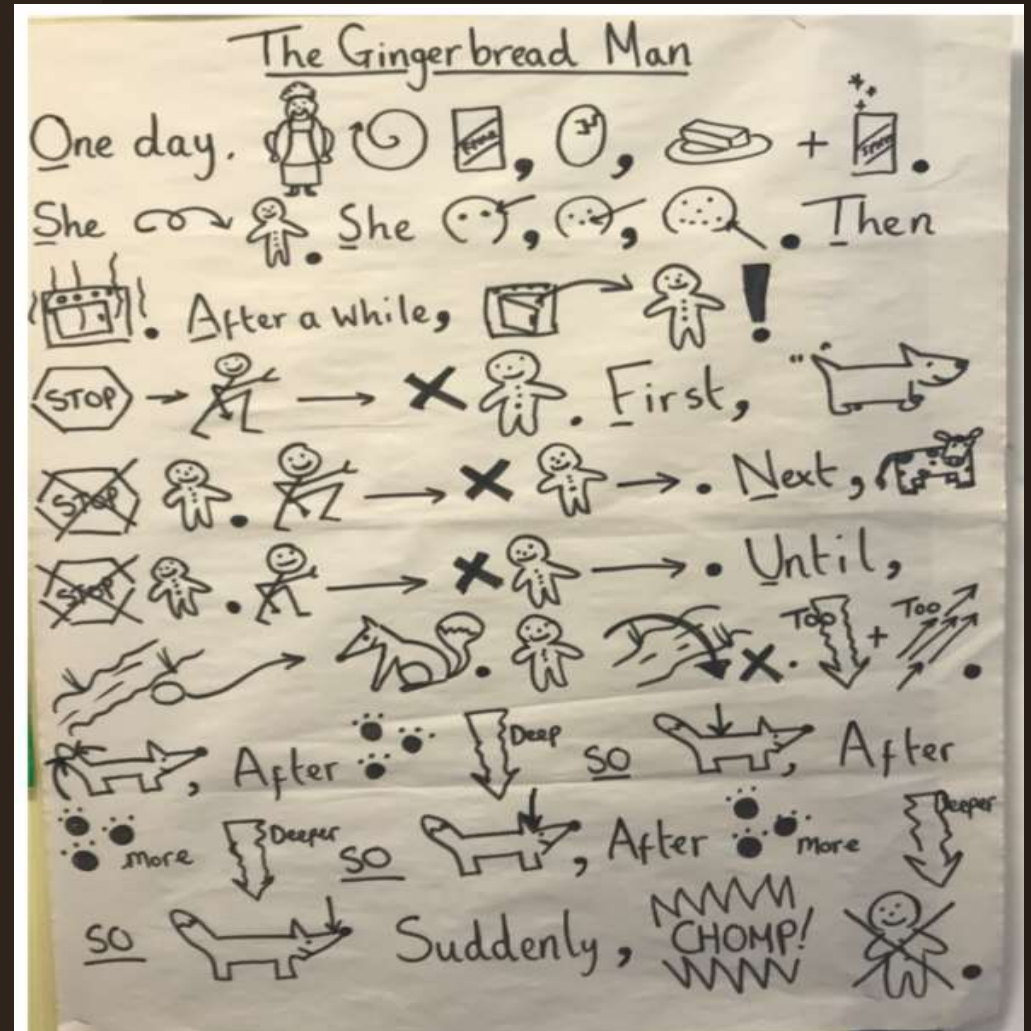 The Gingerbread Man
One day. , , + .
She . She , , . Then
. After a while, !
STOP . First,
STOP . . Next,
STOP . . Until,
. . Too + Too .
, After Deep so , After
more Deeper so , After more Deeper
so Suddenly, CHOMP! .